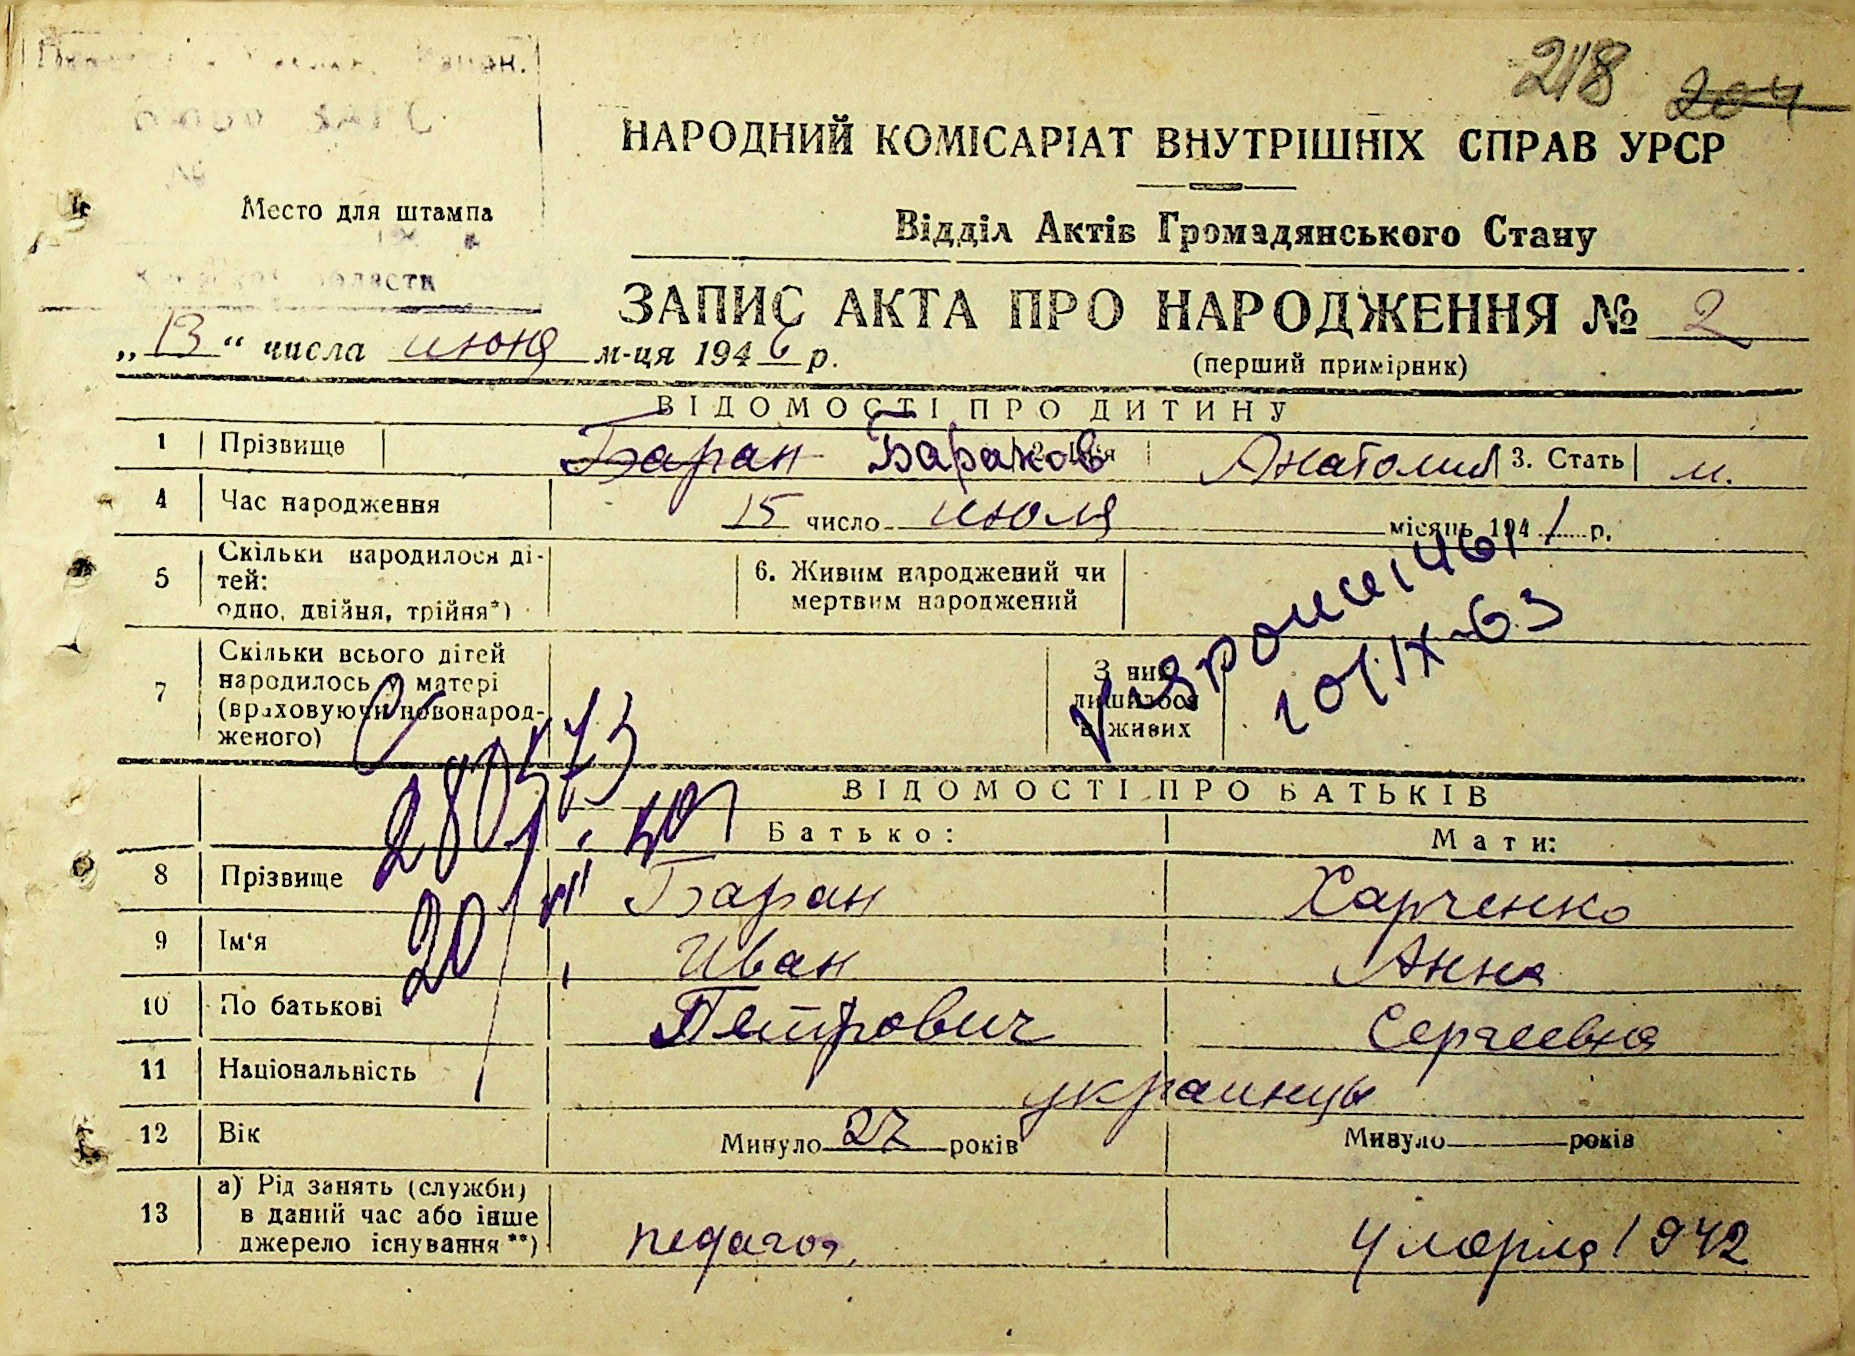 218 204
НАРОДНИЙ КОМІСАРІАТ ВНУТРІШНІХ СПРАВ УРСР
Место для штампа
Відділ Актів Громадянського Стану
области
ЗАПИС АКТА ПРО НАРОДЖЕННЯ № 2
„13“ числа июня м-ця 1946 р.
(перший примірник)
ВІДОМОСТІ ПРО ДИТИНУ
1 Прізвище Баран Баранов 2. Ім'я Анатолий 3. Стать м.
4 Час народження 15 число июля місяць 1941 р.
5 Скільки народилося ді-
тей:
одно, двійня, трійня*)
6. Живим народжений чи
мертвим народжений
7 Скільки всього дітей
народилось у матері
(враховуючи новонарод-
женого)
З них
лишилося
в живих
10/IX-63
ВІДОМОСТІ ПРО БАТЬКІВ
Батько: Мати:
8 Прізвище Баран Харченко
9 Ім'я Иван Анна
10 По батькові Петрович Сергеевна
11 Національність украинцы
12 Вік Минуло 27 років Минуло років
13 а) Рід занять (служби)
в даний час або інше
джерело існування**)
педагог, 4 марта 1942